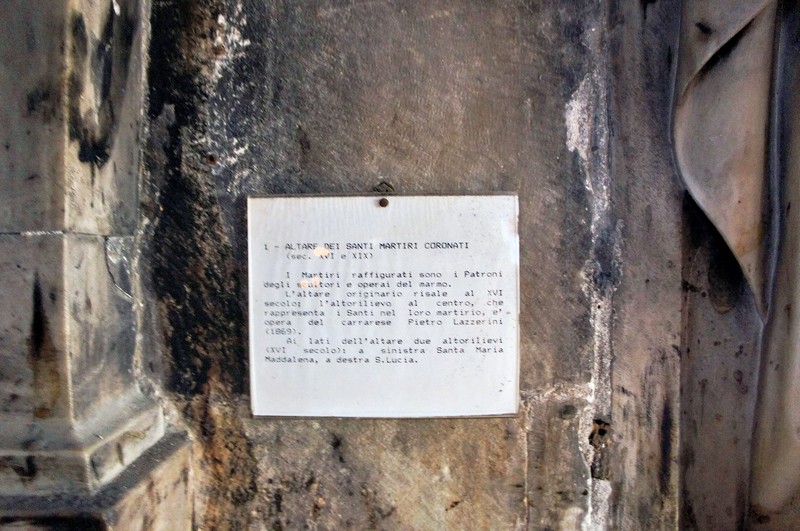 1 - ALTARE DEI SANTI MARTIRI CORONATI
(sec. XVI e XIX)
I Martiri raffigurati sono i Patroni
degli scultori e operai del marmo.
L'altare originario risale al XVI
secolo; l'altorilievo al centro, che
rappresenta i Santi nel loro martirio, e'
opera del carrarese Pietro Lazzerini
(1869).
Ai lati dell'altare due altorilievi
(XVI secolo): a sinistra Santa Maria
Maddalena, a destra S.Lucia.